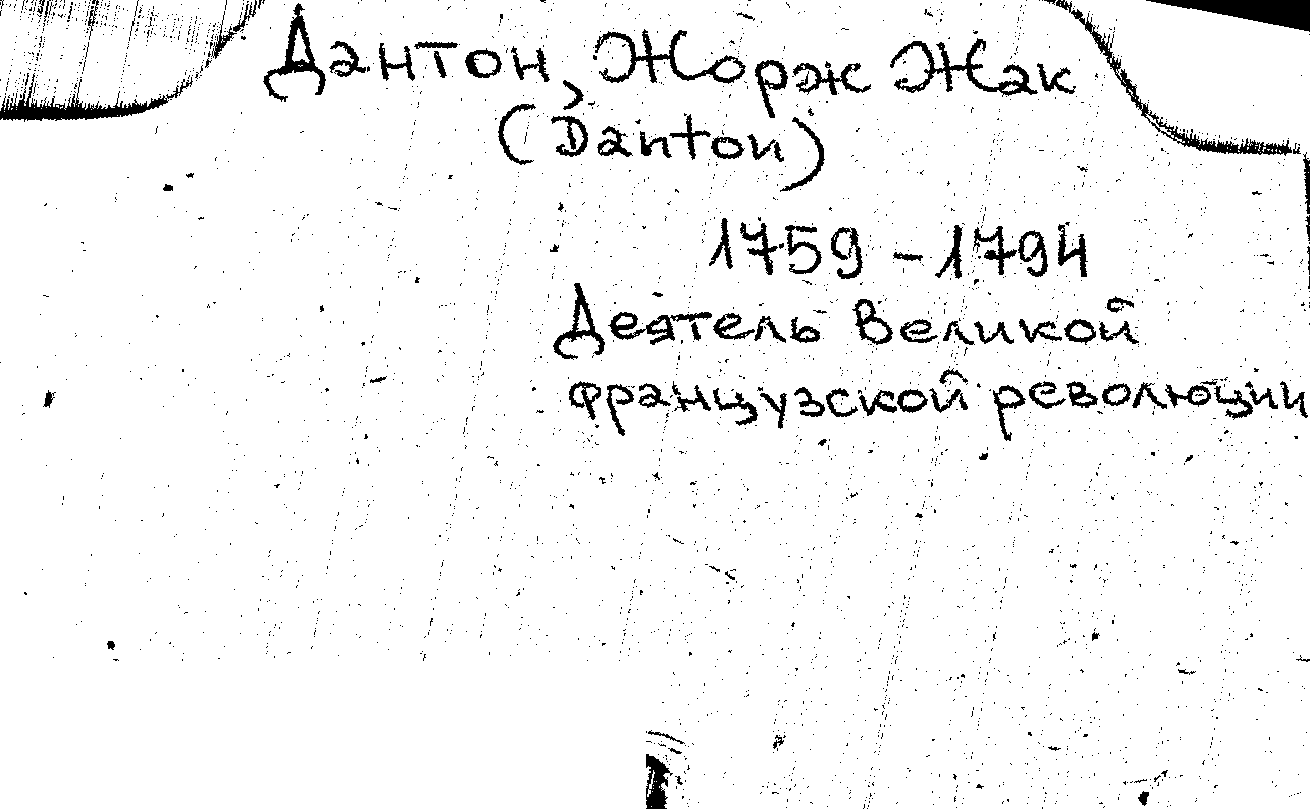 Дантон, Жорж Жак
(Danton)
1759 - 1794
Деятель Великой
французской революции